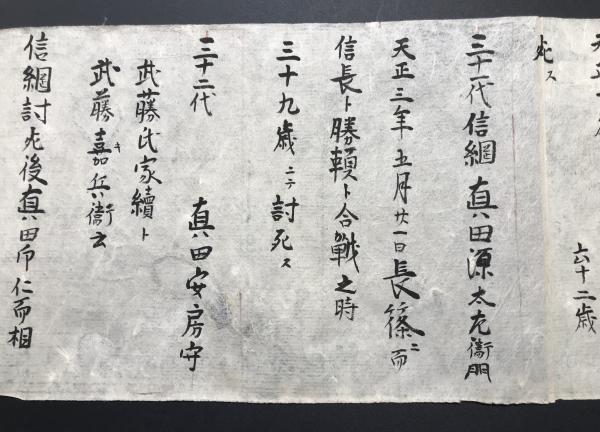 六十二歳
死ス
三十一代信綱 眞田源太左衛門
天正三年五月廿一日長篠ニ而
信長ト勝頼ト合戰之時
三十九歳ニテ討死ス
三十二代 眞田安房守
武藤氏家續ト
武藤嘉兵衛云
信綱討死後眞田 仁而相